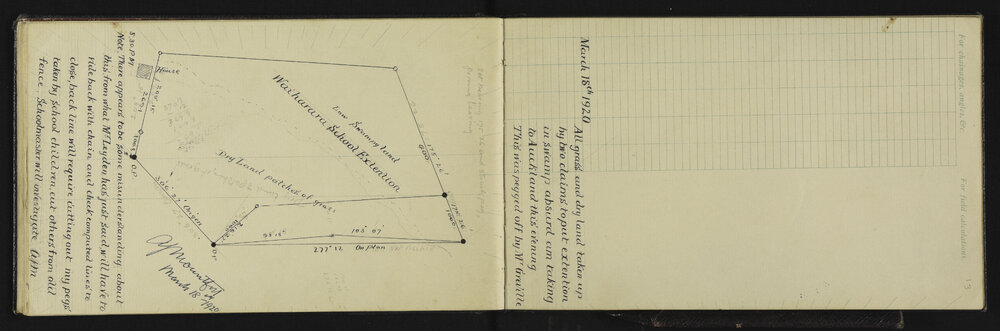 5.30 P.M
Note. There appears to be some misunderstanding about
this from what Mr Leyden has just said, will have to
ride back with chain and check computed lines to
close, back line will require cutting out my pegs
taken by school children, cut others from old
fence. Schoolmaster will investigate AJM
House
Waiharara School Extention
Low Swampy land
Dry Land patches of grass
175° 26'
600
175° 26'
O.P.
306° 22' Origin
O.P
95° 15"
105° 07'
277° 12 On plan
AJ Mountfort
March 18 1920
March 18th 1920
All grass and dry land taken up
by two claims to put extention
in swamp absurd am taking
to Auckland this evening
This was pegged off by Mr Greville
For chainages, angles, &c.
For field calculations.
13